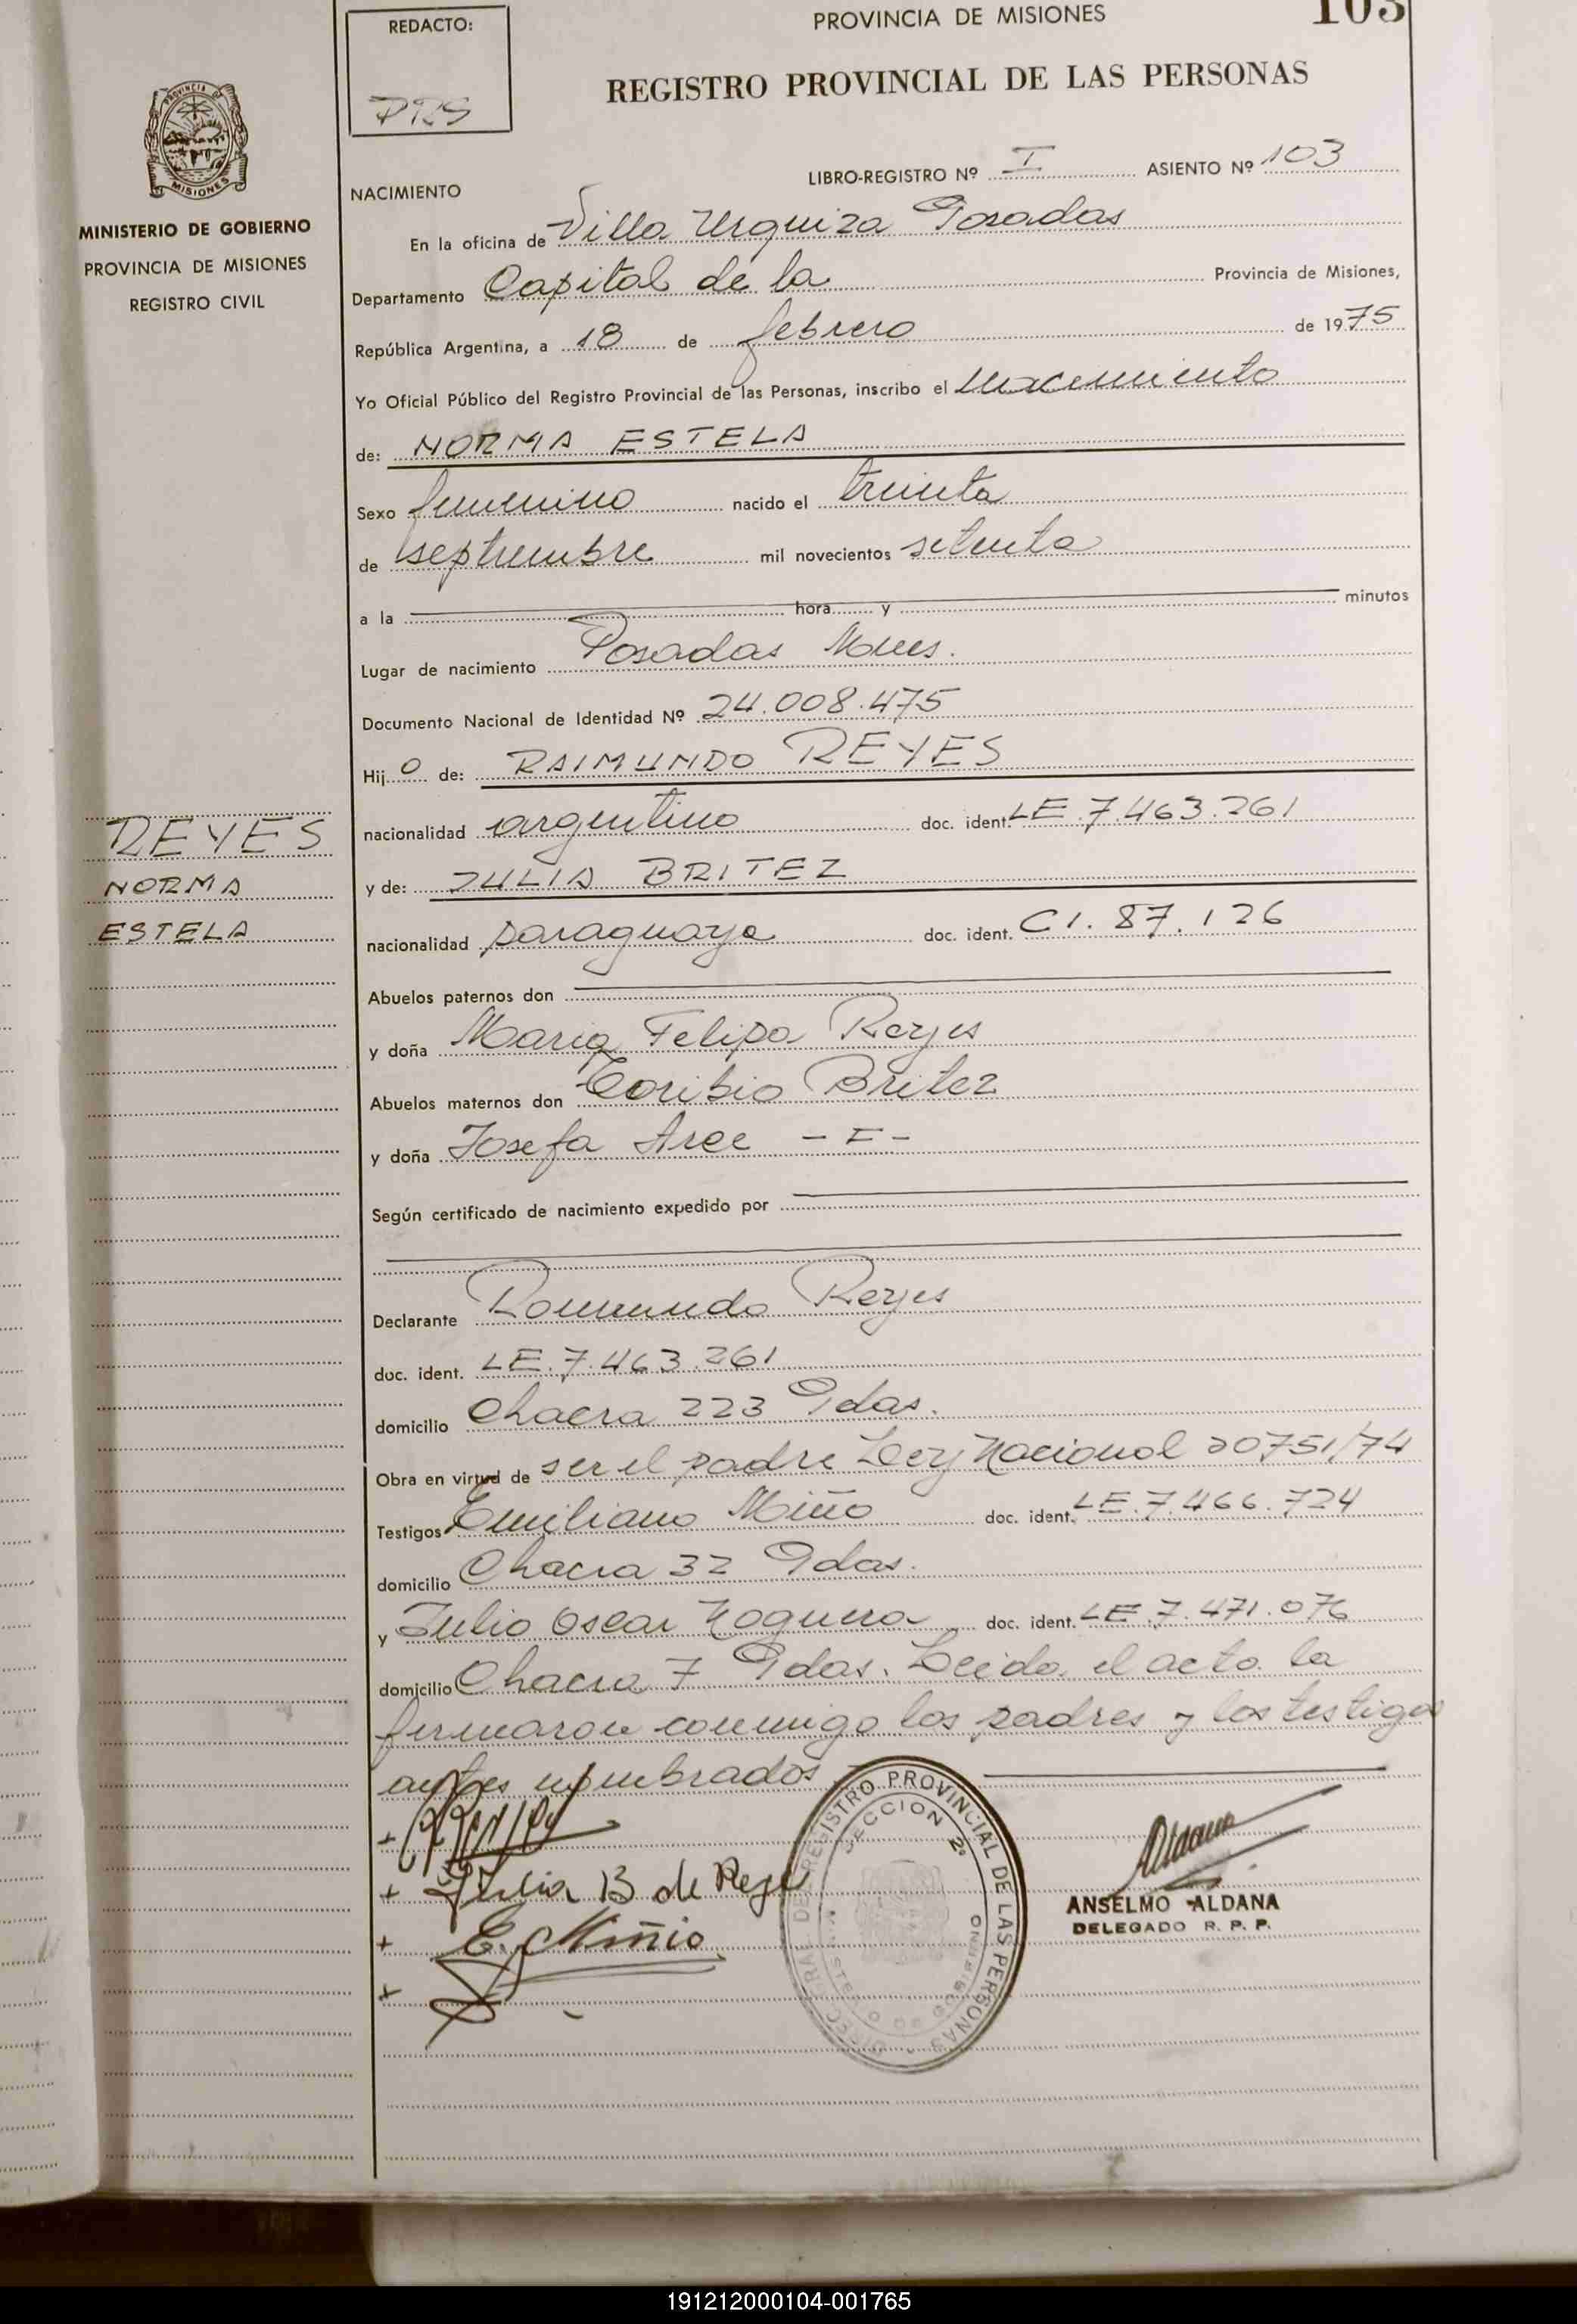 REDACTO:
PROVINCIA DE MISIONES
103
REGISTRO PROVINCIAL DE LAS PERSONAS
LIBRO-REGISTRO Nº I ASIENTO Nº 103
NACIMIENTO
PROVINCIA DE
MISIONES
MINISTERIO DE GOBIERNO
PROVINCIA DE MISIONES
REGISTRO CIVIL
En la oficina de Villa Urquiza Posadas
Departamento Capital de la Provincia de Misiones,
República Argentina, a 18 de febrero de 1975
Yo Oficial Público del Registro Provincial de las Personas, inscribo el nacimiento
de: NORMA ESTELA
Sexo femenino nacido el treinta
de septiembre mil novecientos setenta
a la hora y minutos
Lugar de nacimiento Posadas Mnes.
Documento Nacional de Identidad Nº 24.008.475
Hijo de: RAIMUNDO REYES
nacionalidad argentino doc. ident. LE 7.463.261
REYES
NORMA
ESTELA
y de: JULIA BRITEZ
nacionalidad paraguaya doc. ident. CI. 87.126
Abuelos paternos don
y doña Maria Felipa Reyes
Abuelos maternos don Toribio Britez
y doña Josefa Arce
Según certificado de nacimiento expedido por
Declarante Raimundo Reyes
doc. ident. LE.7.463.261
domicilio Chacra 223 Pdas.
Obra en virtud de ser el padre Ley Nacional 20751/74
Testigos Emiliano Miño doc. ident. LE.7.466.724
domicilio Chacra 32 Pdas.
y Julio Oscar Noguera doc. ident. LE.7.471.076
domicilio Chacra 7 Pdas. Leida el acto la
firmaron conmigo los padres y los testigos
antes nombrados
+
+ Julia B de Reye
+ E. Miño
+
REGISTRO PROVINCIAL DE LAS PERSONAS
SECCION 2ª
DE GOBIERNO
Aldana
ANSELMO ALDANA
DELEGADO R. P. P.
191212000104-001765